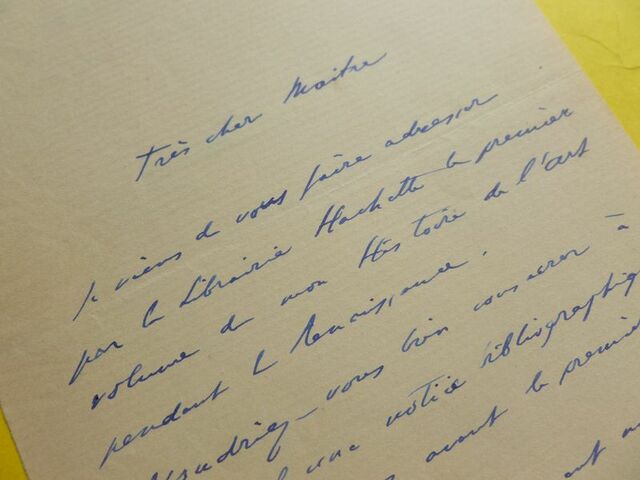 Très cher Maître
Je viens de vous faire adresser
par la Librairie Hachette le premier
volume de mon Histoire de l'art
pendant la Renaissance.
Voudriez-vous bien consacrer à
une notice bibliographiq
avant le premier